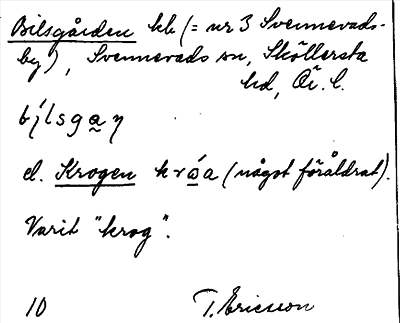 Bilsgården hk (= nr 3 Svennevads-
by), Svennevads sn, Sköllersta
hd, Ör. l.
bílsgaŋ
el. Krogen króa (något föråldrat).
Varit "krog".
10 T. Ericsson